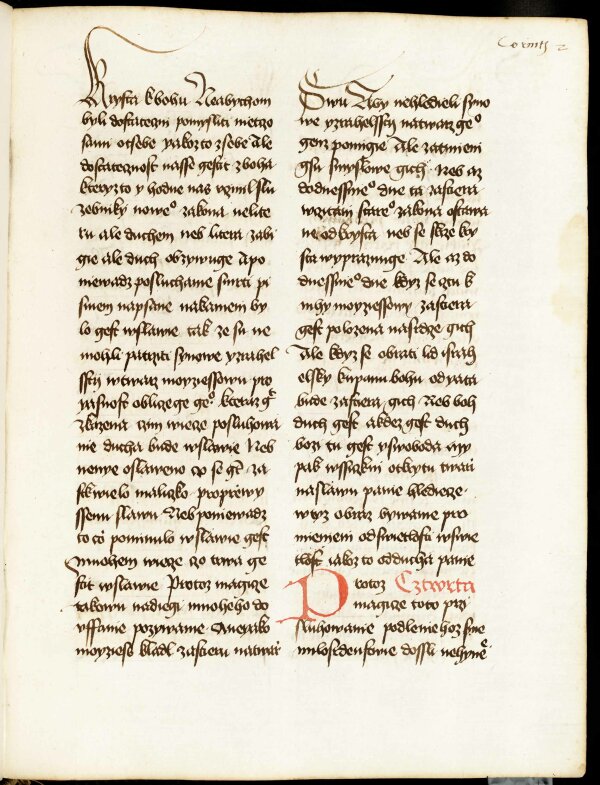 Corints 2
Krysta k bohu Neabychom
byli dostatczni pomysliti nieczo
sami otsebe yakozto zsebe Ale
dostatecznost nasse gest zboha
kteryzto y hodne nas vczinil slu
zebniky nowe° zakona ne lite
ru ale duchem neb litera zabi
gie ale duch obzywuge A po
niewadz posluchanie smrti pi
smem napsane na kameni by
lo gest w slawie tak ze su ne
mohli patrziti synowe yzrahel
sstij w twarz moyziessowu pro
yasnost oblicze ge° kteraz g̃
zkazena czim wiecze posluhowa
nie ducha bude w slawie Neb
nenye oslaweno czo se ge za
stkwielo maliczko pro prziewy
ssenu slawu Neb poniewadz
to czo pominulo w slawie gest
mnohem wiecze czo trwa ge
stit w slawie Protoz magicze
takowu nadiegi mnoheho do
uffanie pozywame A ne yako
moyziess kladl zastieru na twarz
Swu Aby nehledieli syno
we yzrahelsstij na twarz ge°
genz pomigie Ale zatmieni
gsu smyslowe gich Neb az
do dnessnie° dne ta zastiera
w cztani stare° zakona ostawa
ne odkryta neb se skrze kry
sta wyprazniuge Ale az do
dnessnie° dne kdyz se cztu k
nihy moyziessowy zastiera
gest polozena na srdcze gich
Ale kdyz se obrati lid israh
elsky ku panu bohu odyata
bude zastiera gich Neb boh
duch gest a kdez gest duch
bozi tu gest y swoboda my
pak wssiczkni otkrytu twarzi
na slawu panie hledicze
w tyz obraz bywame pro
mieneni od swietlosti w swie
tlost iakozto od ducha panie
Protoz Cztwrta
magicze toto przi
sluhowanie podle niehoz sme
milosrdenstwie dossli nehyne̅